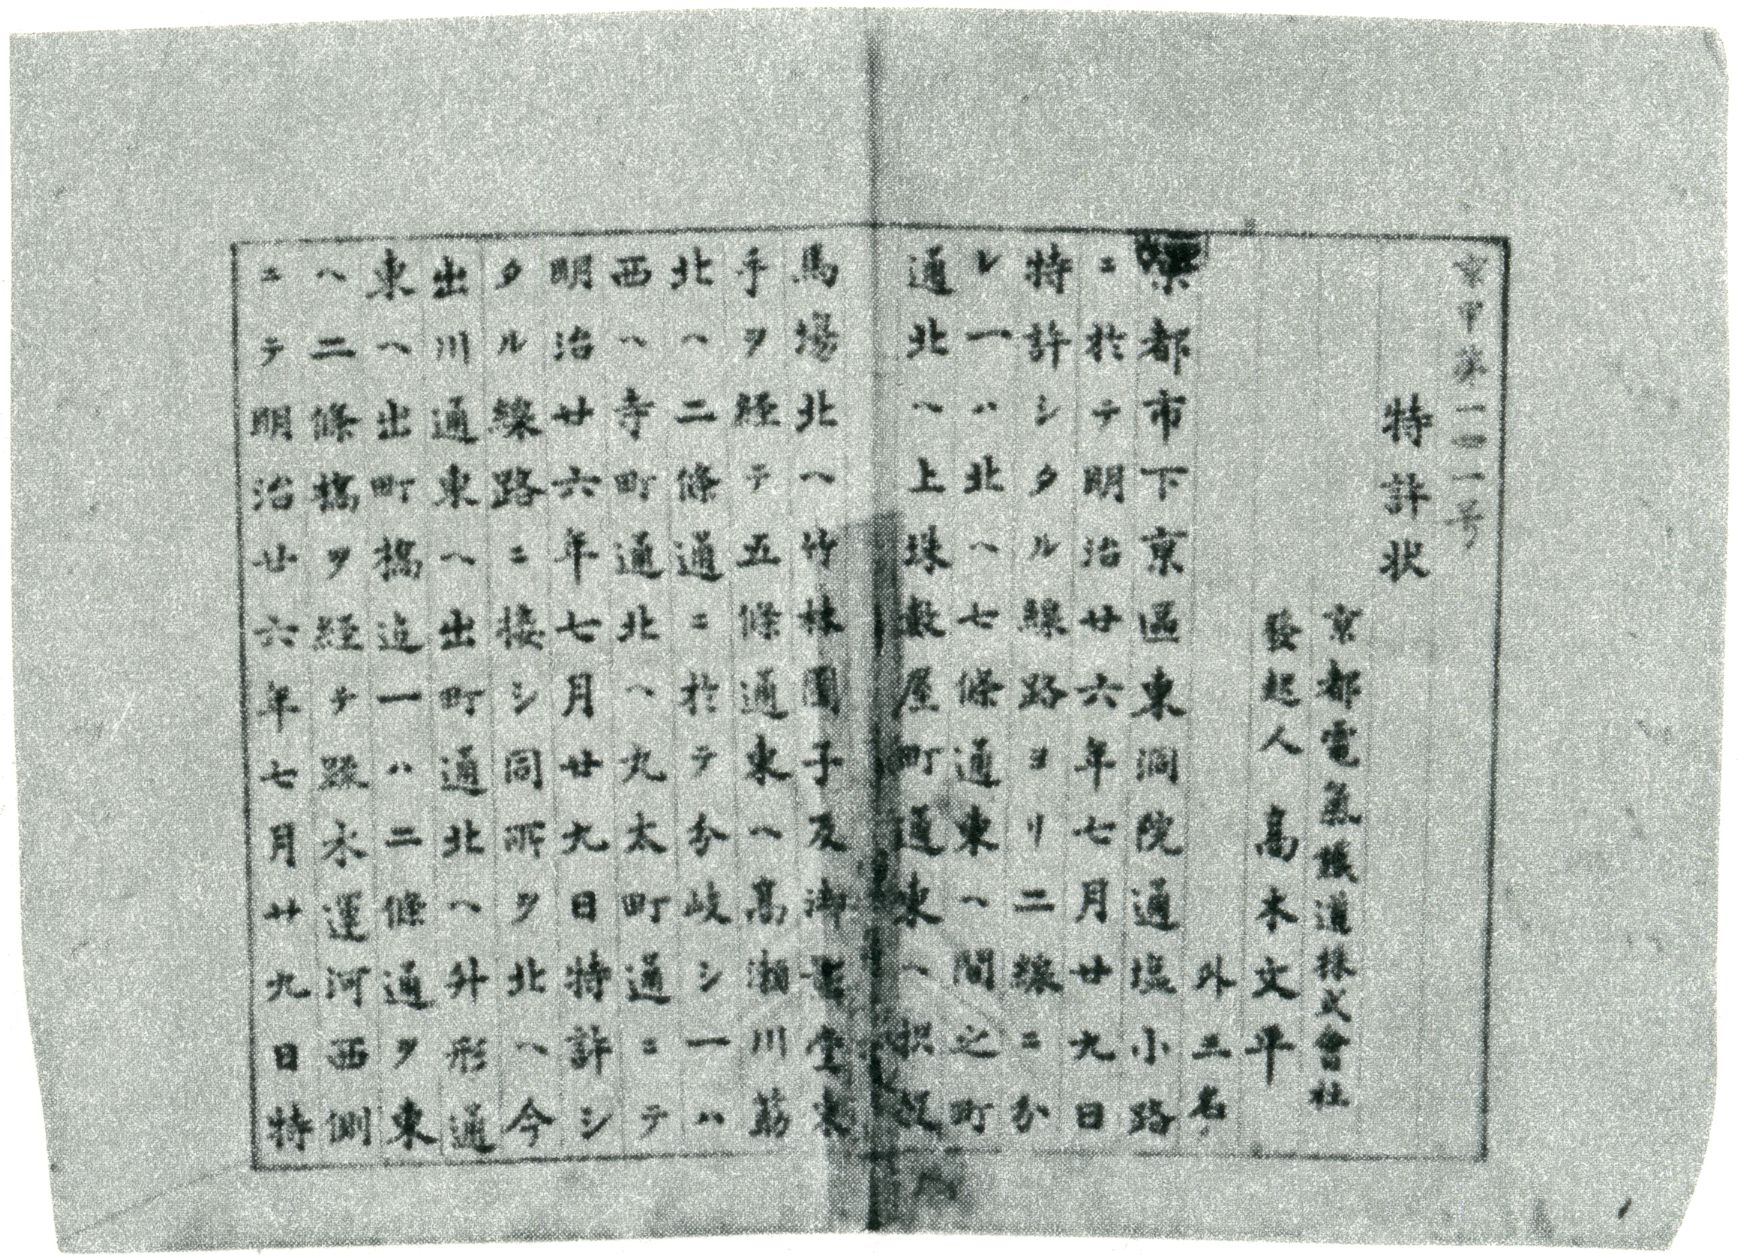 京甲第一二一号
特許状
京都電氣鐵道株式會社
發起人 高木文平
外三名
京都市下京區東洞院通塩小路
ニ於テ明治廿六年七月廿九日
特許シタル線路ヨリ二線ニ分
レ一ハ北ヘ七條通東ヘ間之町
通北ヘ上珠數屋町通東ヘ枳殻
馬場北ヘ竹林園子及御影堂東
手ヲ経テ五條通東ヘ高瀬川筋
北ヘ二條通ニ於テ分岐シ一ハ
西ヘ寺町通北ヘ丸太町通ニテ
明治廿六年七月廿九日特許シ
タル線路ニ接シ同所ヲ北ヘ今
出川通東ヘ出町通北ヘ升形通
東ヘ出町橋迄一ハ二條通ヲ東
ヘ二條橋ヲ経テ疏水運河西側
ニテ明治廿六年七月廿九日特